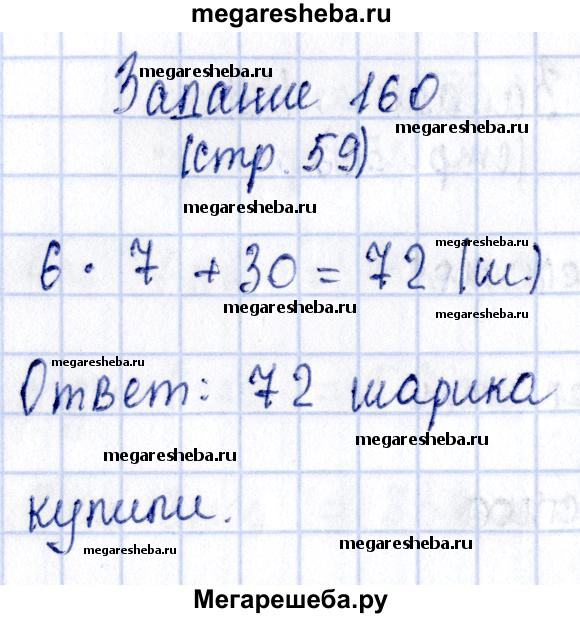 megaresheba.ru
megaresheba.ru
Задание 160
megaresheba.ru
(стр. 59)
megaresheba.ru
megaresheba.ru
6 · 7 + 30 = 72 (ш.)
megaresheba.ru
megaresheba.ru
megaresheba.ru
Ответ: 72 шарика
megaresheba.ru
megaresheba.ru
купили.
megaresheba.ru
megaresheba.ru
Мегарешеба.ру